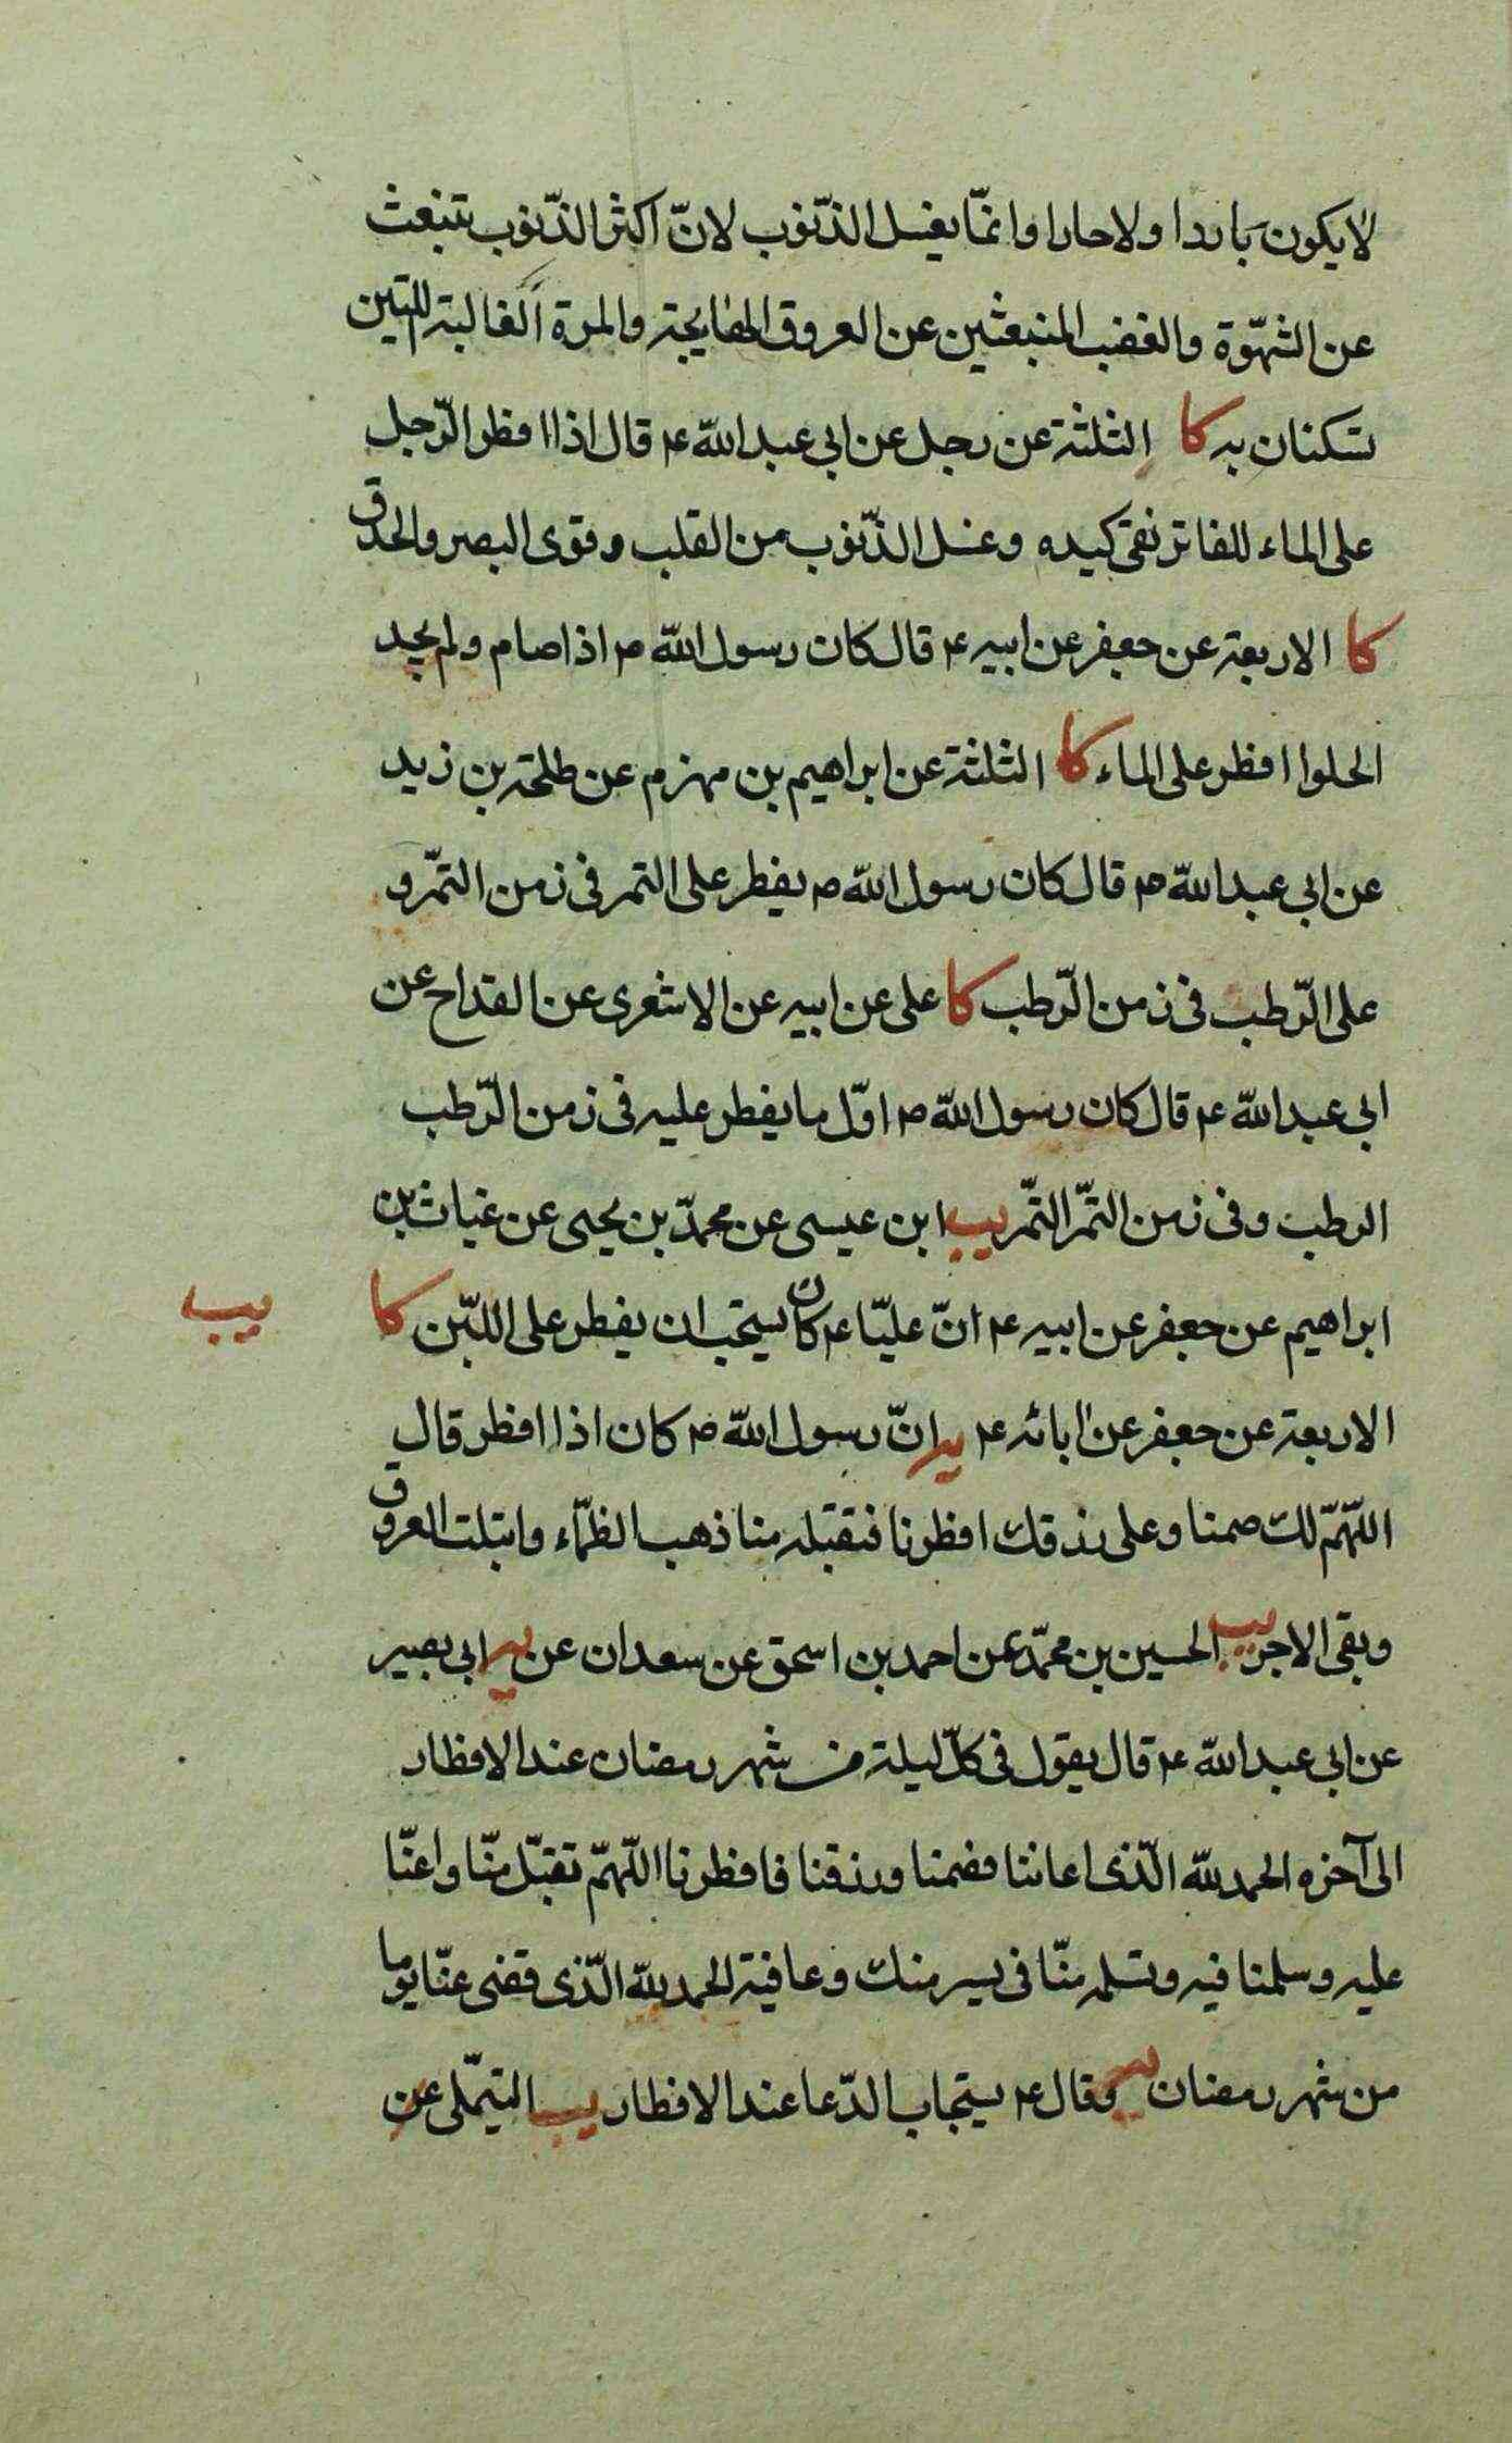 لا يكون باردا ولا حارا وانمّا يغسل الذّنوب لانّ اكثر الذّنوب تنبعث
عن الشهّوة والغضب المنبعثين عن العروق الهايجة والمرة الغالبة اللتين
تسكنان به كا الثلثة عن رجل عن ابي عبد الله ع قال اذا افطر الرّجل
على الماء الفاتر نقى كبده وغسل الذّنوب من القلب وقوى البصر والحدق
كا الاربعة عن جعفر عن ابيه ع قال كان رسول الله ص اذا صام ولم يجد
الحلوا افطر على الماء كا الثلثة عن ابراهيم بن مهزم عن طلحة بن زيد
عن ابي عبد الله ع قال كان رسول الله ص يفطر على التمر في زمن التّمر و
على الرّطب في زمن الرّطب كا على عن ابيه عن الاشعرى عن القداح عن
ابي عبد الله ع قال كان رسول الله ص اوّل ما يفطر عليه في زمن الرّطب
الرطب وفي زمن التمّر التمّر يب ابن عيسى عن محمدّ بن يحيى عن غياث بن
ابراهيم عن جعفر عن ابيه ع انّ عليّا ع كان يستحب ان يفطر على اللبّن كا
يب
الاربعة عن جعفر عن ابائه ع يه انّ رسول الله ص كان اذا افطر قال
اللّهمّ لك صمنا وعلى رزقك افطرنا فتقبله منا ذهب الظمّاء وابتلت العروق
وبقى الاجر يب الحسين بن محمّد عن احمد بن اسحق عن سعدان عن يه ابي بصير
عن ابي عبد الله ع قال يقول في كلّ ليلة من شهر رمضان عند الافطار
الى آخره الحمد لله الّذى اعاننا فصمنا ورزقنا فافطرنا اللّهمّ تقبّل منّا واعنّا
عليه وسلمنا فيه وتسلمه منّا في يسر منك وعافية الحمد لله الّذى قضى عنّا يوما
من شهر رمضان يه وقال ع يستجاب الدّعا عند الافطار يب التيملى عن